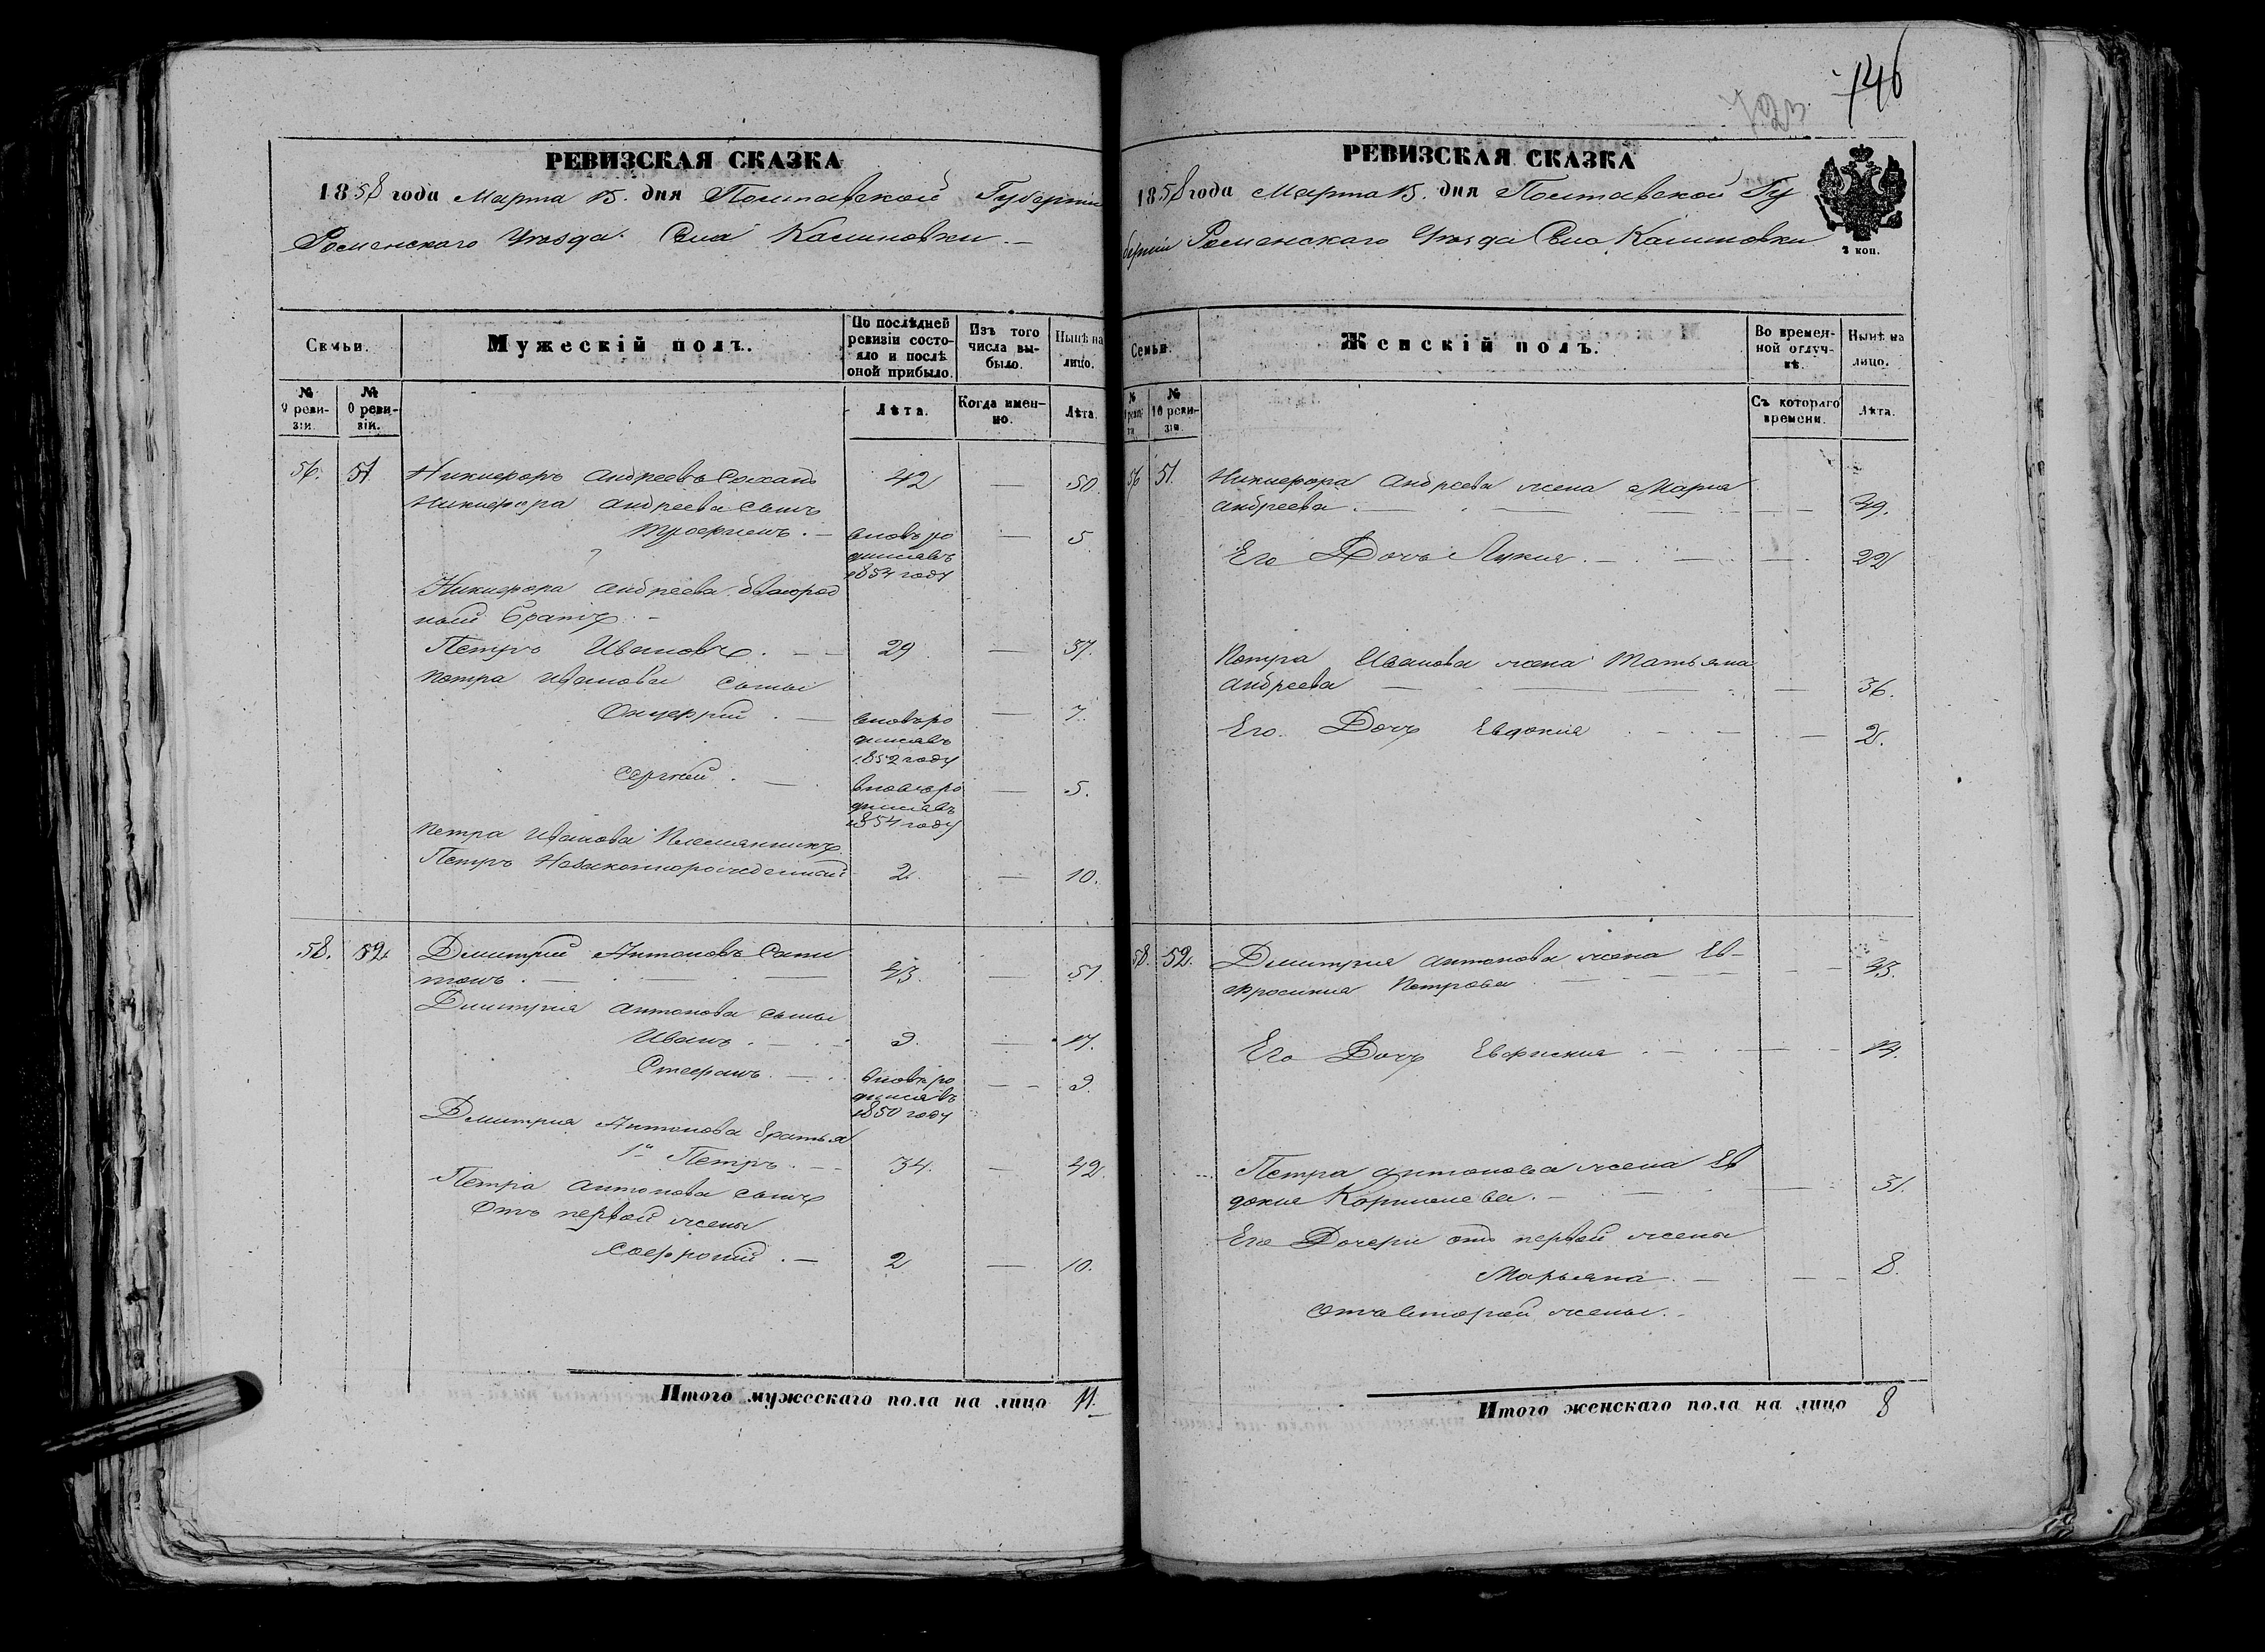 РЕВИЗСКАЯ СКАЗКА
1858 года Марта 15. дня Полтавской Губерніи
Роменскаго Уѣзда. Села Калиновки. —
Семьи.
Мужескій полъ.
По послѣдней ревизіи состояло и послѣ оной прибыло.
Изъ того числа выбыло.
Нынѣ на лицо.
№ 9 ревизіи.
№ 0 ревизіи.
Лѣта.
Когда именно.
Лѣта.
56. 51 Никифоръ Андреевъ 42 — 50.
Никифора Андреева сынъ
Трофимъ. — вновь ро — 5
дился въ
1854 году
Никифора Андреева двоюрод
ный братъ. —
Петръ Ивановъ. — — 29 — 37.
Петра Иванова сыны
вновь ро — 7.
дился въ
1852 году
Сергѣй. — вновь ро — 5.
дился въ
1854 году
Петра Иванова племянникъ
Петръ Незаконнорожденный 2 — 10.
58. 52 Дмитрий Антоновъ
43. — 51.
Дмитрия Антонова сыны
Иванъ. — 9. — 17.
Стефанъ. — вновь ро — — 9.
дился въ
1850 году
Дмитрия Антонова братья
1й Петръ. — 34. — 42
Петра Антонова сынъ
Отъ первой жены
Софроній. — 2 — 10.
Итого мужескаго пола на лицо 11.
146
723
РЕВИЗСКАЯ СКАЗКА
1858 года Марта 15. дня Полтавской Гу
берніи Роменскаго Уѣзда Села Калиновки
3 коп.
Семьи.
Женскій полъ.
Во временной отлучкѣ.
Нынѣ на лицо.
№
№ 10 ревизіи
Съ котораго времени.
Лѣта.
56 51. Никифора Андреева жена Марія
Андреева. — 49.
Его Дочь Лукия. — 22
Петра Иванова жена Татьяна
Андреева — 36.
Его Дочь Евдокия — 2.
58. 52. Дмитрия Антонова жена Ев-
фросиния Петрова — 43.
Его Дочь Евфимия — 14.
Петра Антонова жена Ев
докия Корнилева. — 31.
Его Дочери отъ первой жены
Марьяна — 8.
Отъ второй жены. —
Итого женскаго пола на лицо 8